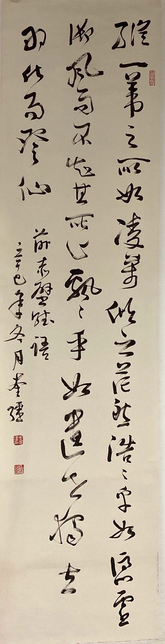 縱一葦之所如凌萬頃之茫然浩浩乎如馮虛
御風而不知其所止飄飄乎如遺世獨立
羽化而登仙
前赤壁賦語
辛巳年冬月